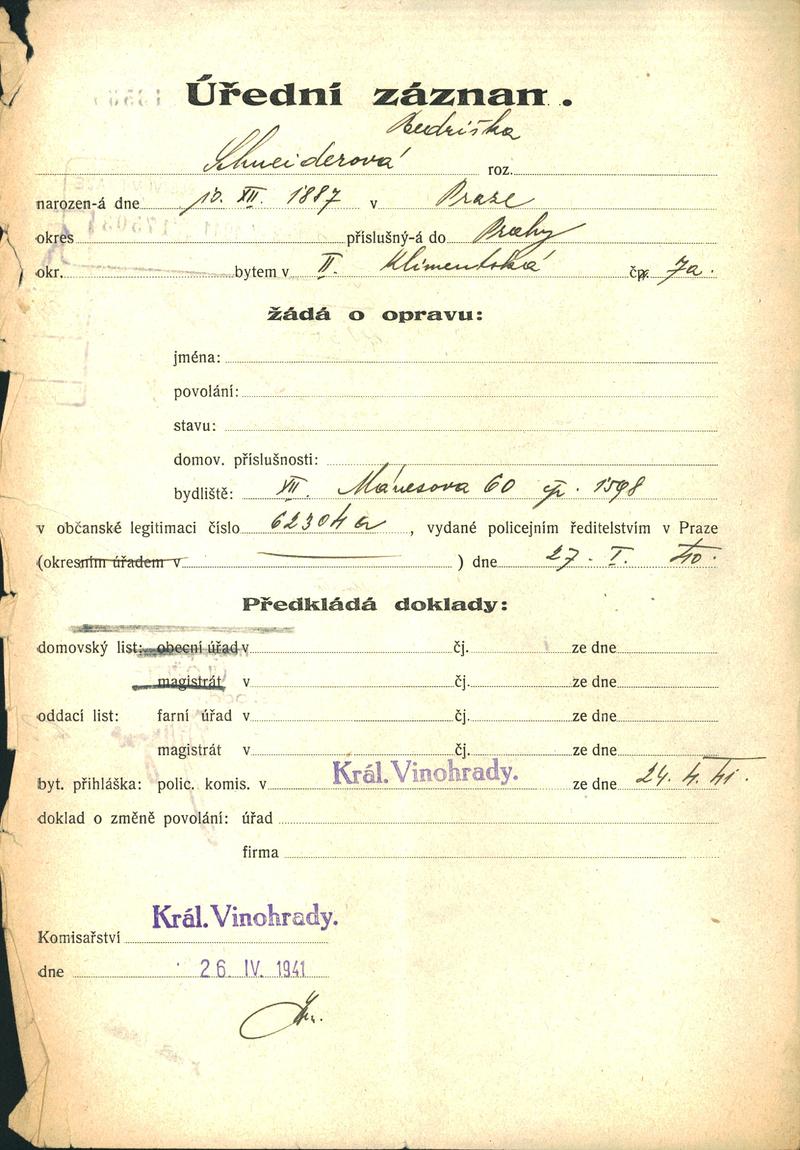 Úřední záznam.
Bedriška
Schneiderová roz.
narozen-á dne 10. XII. 1887 v Praze
okres příslušný-á do Prahy
okr. bytem v II. Klimentská čp. 7a.
žádá o opravu:
jména:
povolání:
stavu:
domov. příslušnosti:
bydliště: XII. Mánesova 60 čp. 1598
v občanské legitimaci číslo 62304 a, vydané policejním ředitelstvím v Praze
(okresním úřadem v ) dne 27. I. 40.
Předkládá doklady:
domovský list: obecní úřad v čj. ze dne
magistrát v čj. ze dne
oddací list: farní úřad v čj. ze dne
magistrát v čj. ze dne
byt. přihláška: polic. komis. v Král. Vinohrady. ze dne 24. 4. 41.
doklad o změně povolání: úřad
firma
Komisařství Král. Vinohrady.
dne 26. IV. 1941